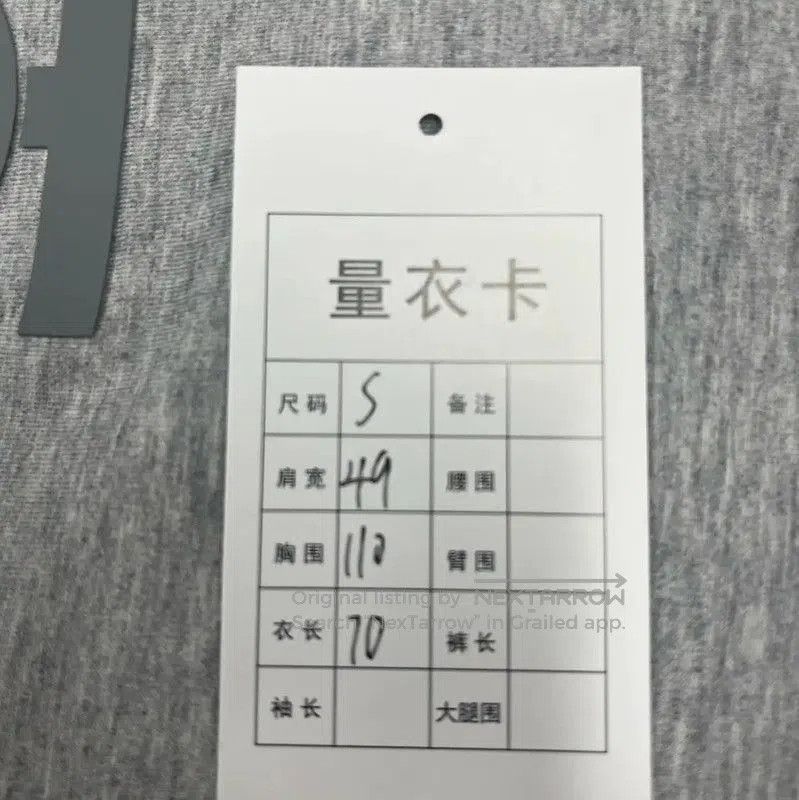 量衣卡
尺码 S 备注
肩宽 49 腰围
胸围 110 臂围
Original listing by NEXTARROW
Search "NexTarrow" in Grailed app.
衣长 70 裤长
袖长 大腿围